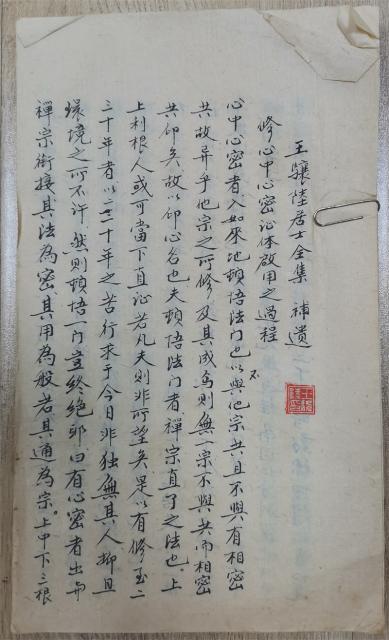 王驤陸居士全集 補遺
修心中心密证体啟用之過程
心中心密者入如來地頓悟法门也以不與他宗共且不與有相密
共故异乎他宗之所修及其成則無一宗不與共而相密
共印矣故以印心名也夫頓悟法门者禪宗直了之法也。上
上利根人或可當下直证若凡夫則非所望矣是以有修至二
三十年者以二三十年之苦行求于今日非獨無其人抑且
環境之所不许然則頓悟一门豈終絕邪曰有心密者出而
禪宗銜接其法為密其用為般若其通為宗。上中下三根